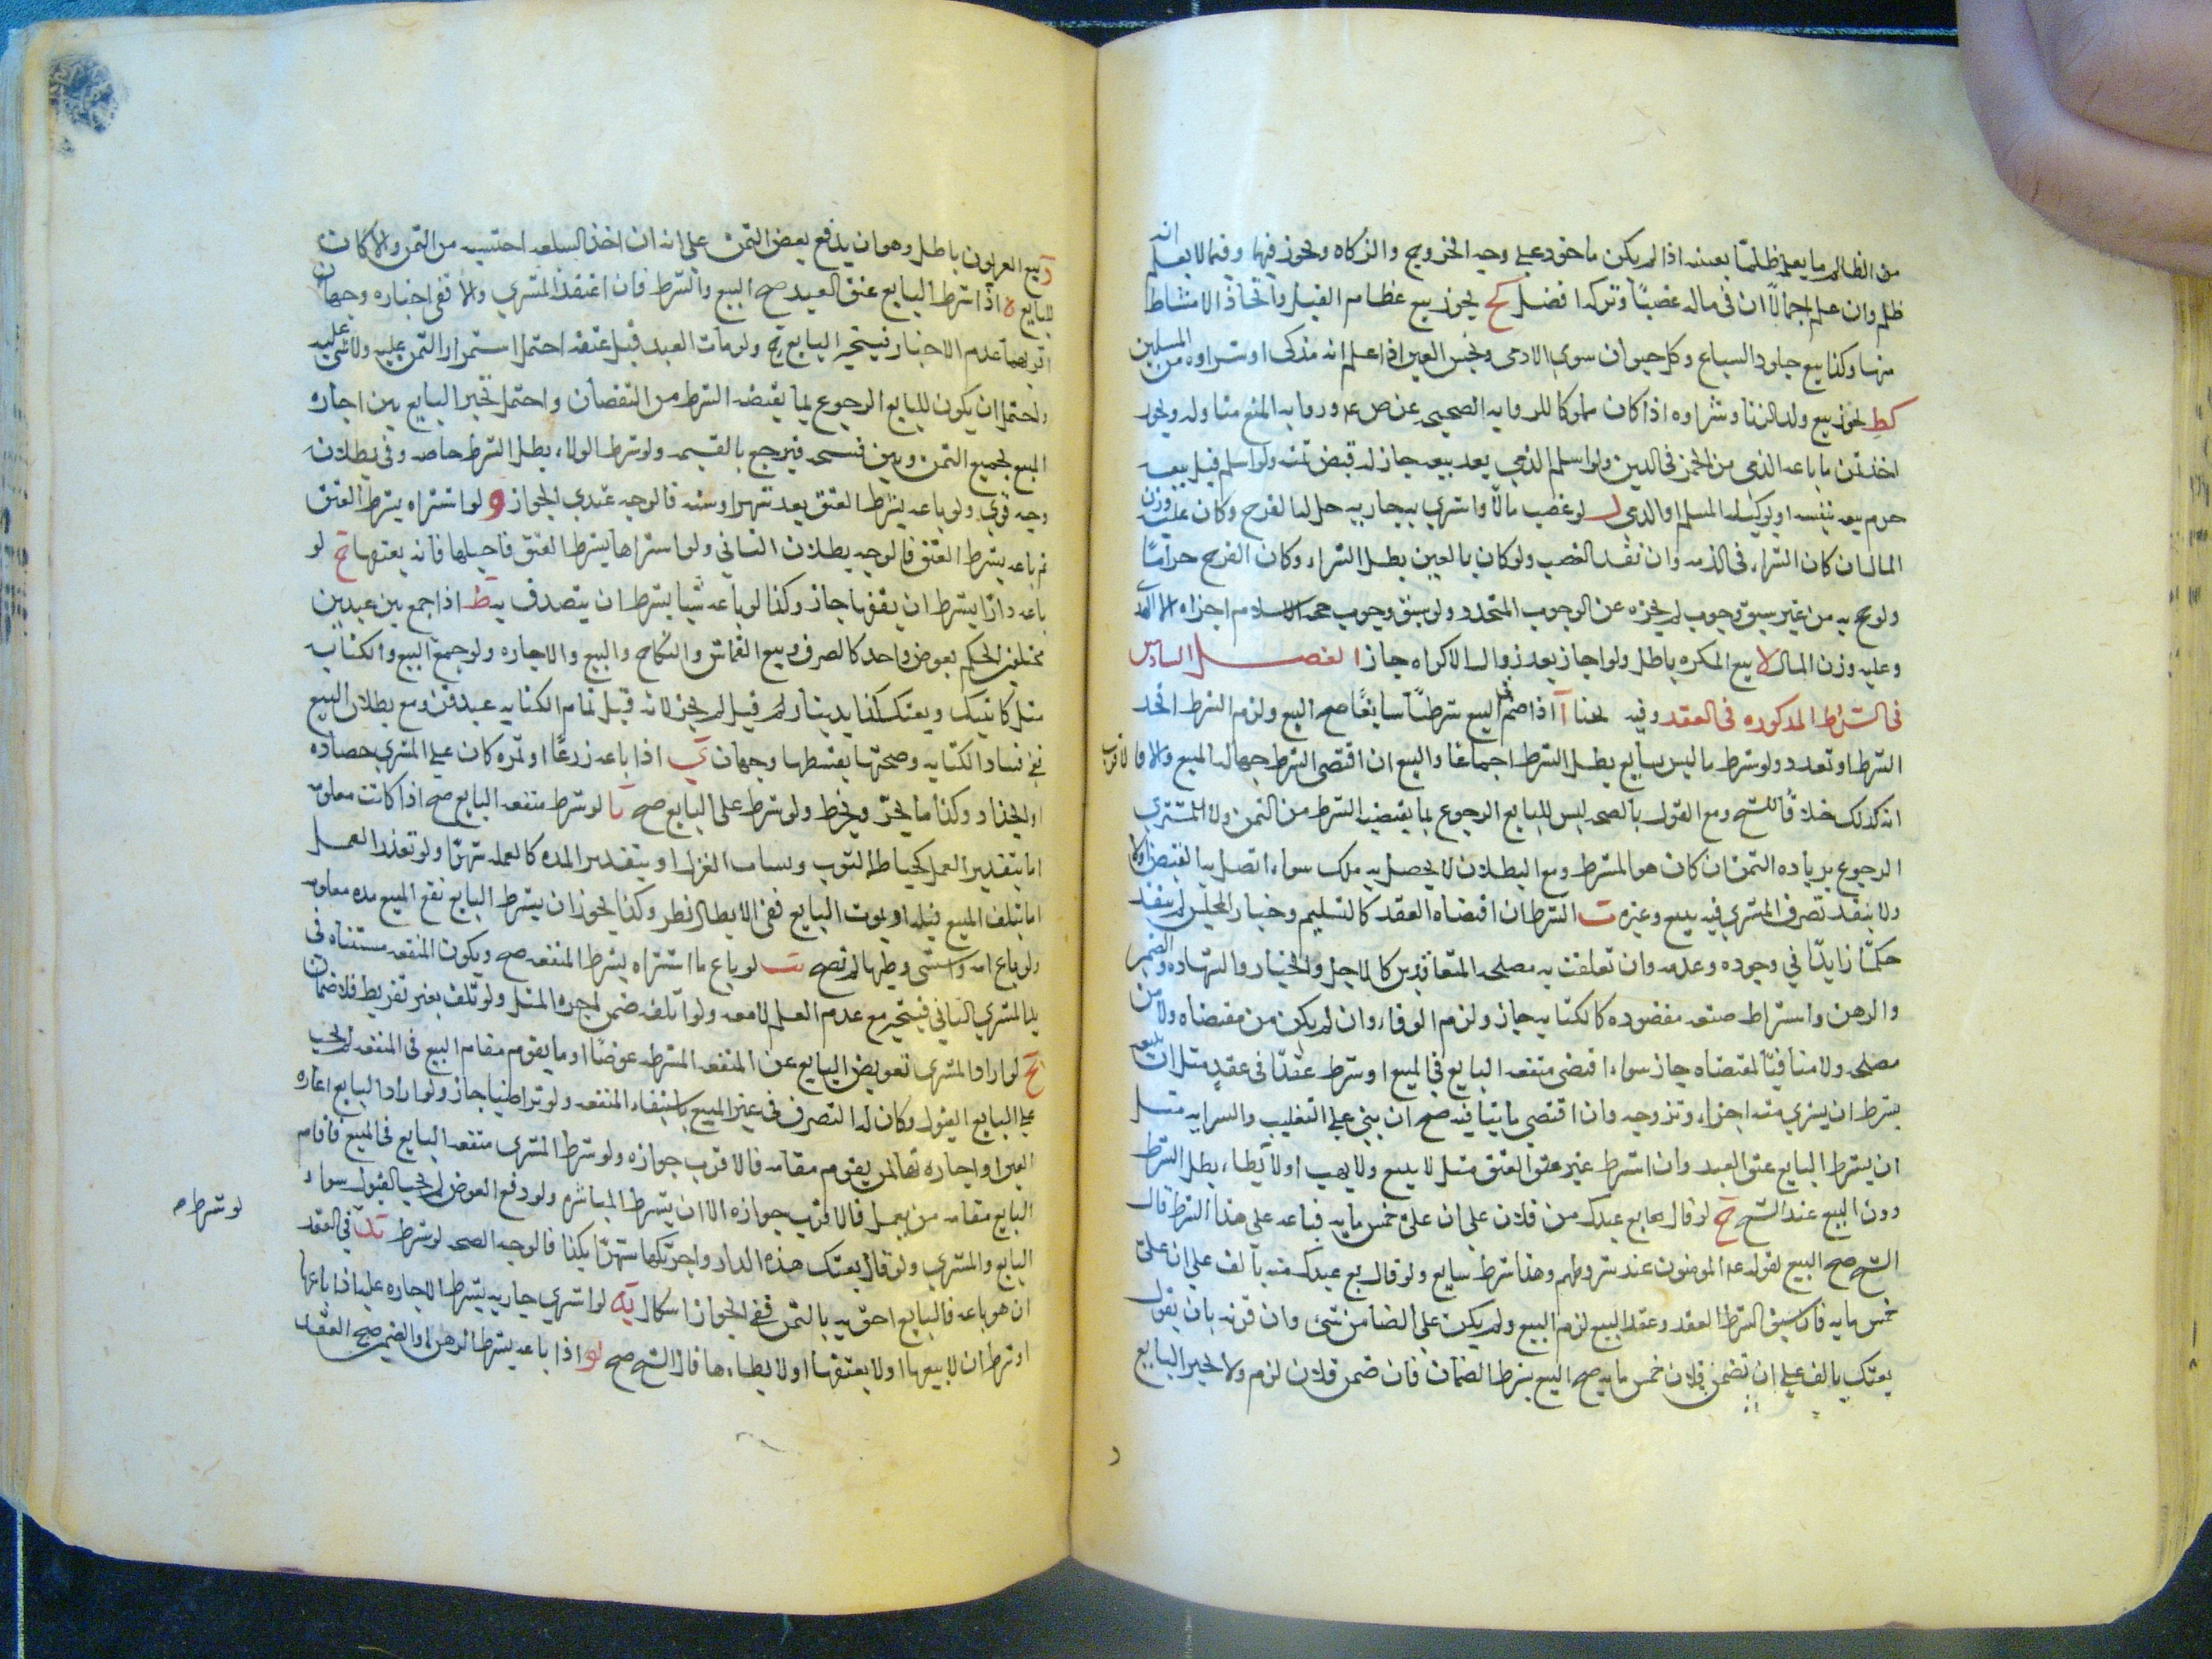 من الظالم ما يعلم ظلمًا بعينه اذا لم يكن ماخوذ على وجه الخروج والزكاه ويجوز فيها وفيما لا يعلم انه
ظلم وان علم اجمالًا ان في ماله غصبًا وتركه افضل كح يجوز بيع عظام الفيل واتخاذ الامشاط
منها وكذا بيع جلود السباع وكل حيوان سوى الادمي ونجس العين اذا علم انه مذكى او شراوه من المسلمين
كط يجوز بيع ولد الزنا وشراوه اذا كان مملوكا للروايه الصحيحه عن ص ع ورواية المنع متاوله ويجوز
اخذ ثمن ما باعه الذمي من الخمر في الدين ولو اسلم الذمي بعد بيعه جاز له قبض ثمنه ولو اسلم قبل بيعه
حرم بيعه بنفسه او بوكيله المسلم او الذمي ل لو غصب مالًا واشترى به جاريه حل له الفرج وكان عليه وزن
المال ان كان الشراء في الذمه وان نقد الغصب ولو كان بالعين بطل الشراء وكان الفرج حرامًا
ولو حج به من غير سبق وجوب لم يجزه عن الوجوب المتجدد ولو سبق وجوب حجة الاسلام اجزاه الا الهدي
وعليه وزن المال لا بيع المكره باطل ولو اجاز بعد زوال الاكراه جاز الفصل السادس
في الشرط المذكوره في العقد وفيه بحثا آ اذا ضم الى البيع شرطًا سايغًا صح البيع ولزم الشرط اتحد
الشرط او تعدد ولو شرط ما ليس بسايغ بطل الشرط اجماعا والبيع ان اقتضى الشرط جهالة المبيع والا فالاقرب
انه كذلك خلافًا للشيخ ومع القول بالصحه ليس للبايع الرجوع بما يقتضيه الشرط من الثمن ولا للمشتري
الرجوع بزياده الثمن ان كان هو المشترط ومع البطلان لا يحصل به ملك سواء اتصل به القبض اولا
ولا ينفذ تصرف المشتري فيه ببيع وغيره ب الشرط ان اقتضاه العقد كالتسليم وخيار المجلس لم يفد
حكمًا زايدًا في وجوده وعدمه وان تعلقت به مصلحه المتعاقدين كالاجل والخيار والشهاده والضمين
والرهن واشتراط صنعه مقصوده كالكتابه جاز ولزم الوفاء وان لم يكن من مقتضاه ولا من
مصلحه ولا منافيًا لمقتضاه جاز سواء اقتضى منفعه البايع في المبيع او شرط عقدًا في عقد مثل ان يبيعه
بشرط ان يشتري منه اجزاء وتزوجه وان اقتضى ما ينافيه صح ان بني على التغليب والسرايه مثل
ان يشترط البايع عتق العبد وان اشترط غير عتق العتق مثل لا يبيع ولا يهب او لا يطاء بطل الشرط
دون البيع عند الشيخ ج لو قال بع عبدك من فلان على ان عليّ خمس مايه فباعه على هذا الشرط قال
الشيخ صح البيع لقوله ع المومنون عند شروطهم وهذا شرط سايع ولو قال بع عبدك منه بالف على ان عليّ
خمس مايه فان سبق الشرط العقد وعقد البيع لزم البيع ولم يكن على الضامن شي وان قرنه بان يقول
بعتك بالف على ان تضمن فلان خمس مايه صح البيع بشرط الضمان فان ضمن فلان لزم ولا لخير البايع
د بيع العربون باطل وهو ان يدفع بعض الثمن على انه ان اخذ السلعه احتسبه من الثمن والا كان
للبايع ه اذا اشترط البايع عتق العبد صح البيع والشرط فان اعتقه المشتري والا ففي اجباره وجهان
اقربهما عدم الاجبار فيتخير البايع ج ولو مات العبد قبل عتقه احتمل استمرار الثمن عليه ولا شي عليه
واحتمل ان يكون للبايع الرجوع بما يقتضيه الشرط من النقصان واحتمل تخير البايع بين اجازه
البيع بجميع الثمن وبين فسخه فيرجع بالقيمه ولو شرط الولاء بطل الشرط خاصه وفي بطلان
وجه قوي ولو باعه بشرط العتق بعد شهر او سنه فالوجه عندي الجواز و لو اشتراه بشرط العتق
ثم باعه بشرط العتق فالوجه بطلان الثاني ولو اشتراها بشرط العتق فاحبلها فانه يعتقها ح لو
باعه دارًا بشرط ان يقفها جاز وكذا لو باعه شيا بشرط ان يتصدق به ط اذا جمع بين عبدين
مختلفي الحكم بعوض واحد كالصرف وبيع القماش والنكاح والبيع والاجاره ولو جمع البيع والكتابه
مثل كاتبتك وبعتك كذا بدينار لم قيل لم يجز لانه قبل تمام الكتابه عبد قن ومع بطلان البيع
ففي فساد الكتابه وصحتها بقسطها وجهان ي اذا باعه زرعًا او ثمره كان على المشتري حصاده
او الجذاذ وكذا ما يجز ويخرط ولو شرط على البايع صح يا لو شرط منفعه البايع صح اذا كانت معلومه
اما بتقدير العمل كخياطه الثوب ونساجه الغزل او بتقدير المده كالعمله شهرًا ولو تعذر العمل
اما بتلف المبيع قبله او بموت البايع ففي الابطال نظر وكذا يجوز ان يشترط البايع نفع المبيع مده معلومه
ولو باع امه واستثنى وطيها لم تصح يب لو باع ما اشتراه بشرط المنفعه صح ويكون المنفعه مستثناه في
يد المشتري الثاني فيتخير مع عدم العلم لا معه ولو اتلفه ضمن اجره المثل ولو تلف بغير تفريط فلا ضمان
يج لو اراد المشتري تعويض البايع عن المنفعه المشترطه عوضًا او ما يقوم مقام المبيع في المنفعه لم يجب
على البايع القبول وكان له التصرف في عين المبيع باستيفاء المنفعه ولو تراضيا جاز ولو اراد البايع اعاره
العين او اجارتها لمن يقوم مقامه فالاقرب جوازه ولو شرط المشتري منفعه البايع في المبيع فاقام
البايع مقامه من يعمل فالاقرب جوازه الا ان يشترط المباشره ولو دفع العوض لم يجب القبول سواء
البايع والمشتري ولو قال بعتك هذه الدار واجرتكها شهرًا بكذا فالوجه الصحه لو شرط يد في العقد
ان هو باعه فالبايع احق به بالثمن ففي الجواز اشكال يه لو اشتري جاريه بشرط الاجاره عليه اذا باعها
او شرط ان لا يبيعها او لا يعتقها او لا يطاءها قال الشيخ صح يو اذا باعه بشرط الرهن او الضمين صح العقد
لو شرط صح